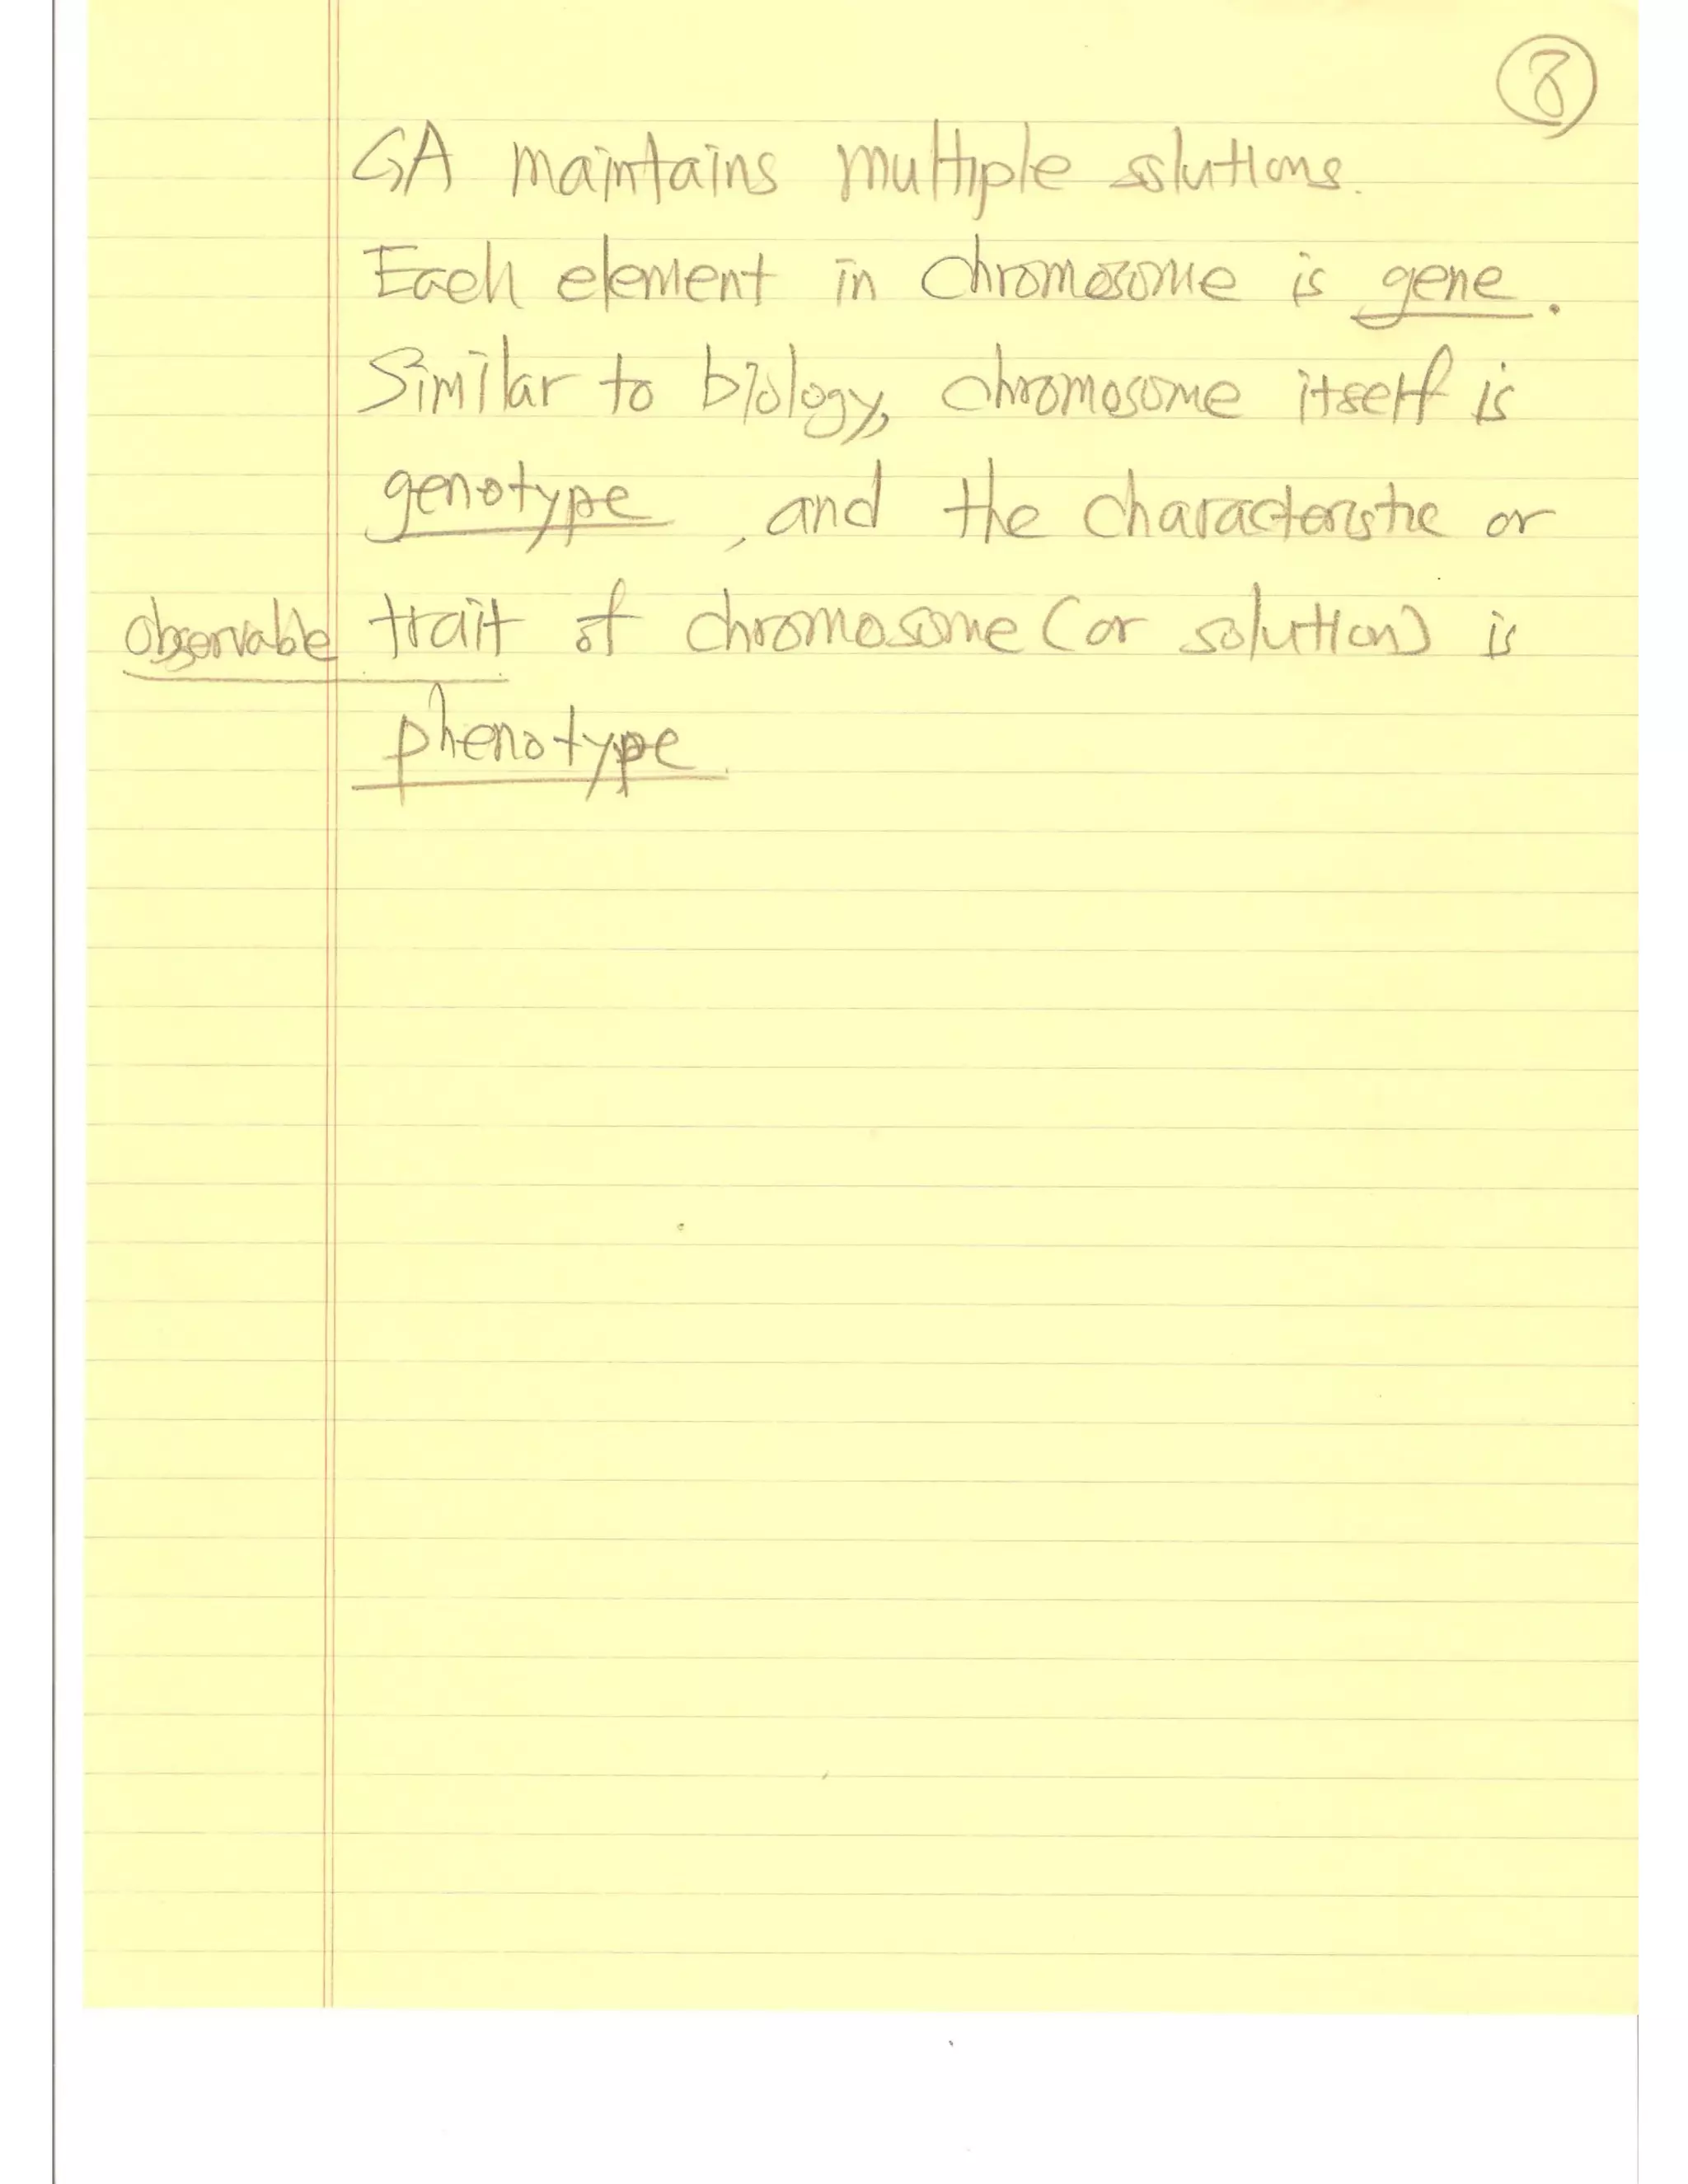 8
GA maintains multiple solutions.
Each element in chromosome is gene.
Similar to biology, chromosome itself is
genotype, and the characteristic or
observable trait of chromosome (or solution) is
phenotype.